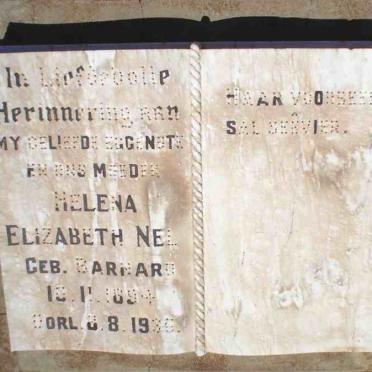 In Liefdevolle
Herinnering aan
MY GELIEFDE EGGENOTE
EN ONS MOEDER
HELENA
ELIZABETH NEL
GEB. BARNARD
11.1894
OORL. 8.8.19
HAAR VOORBEELD
SAL